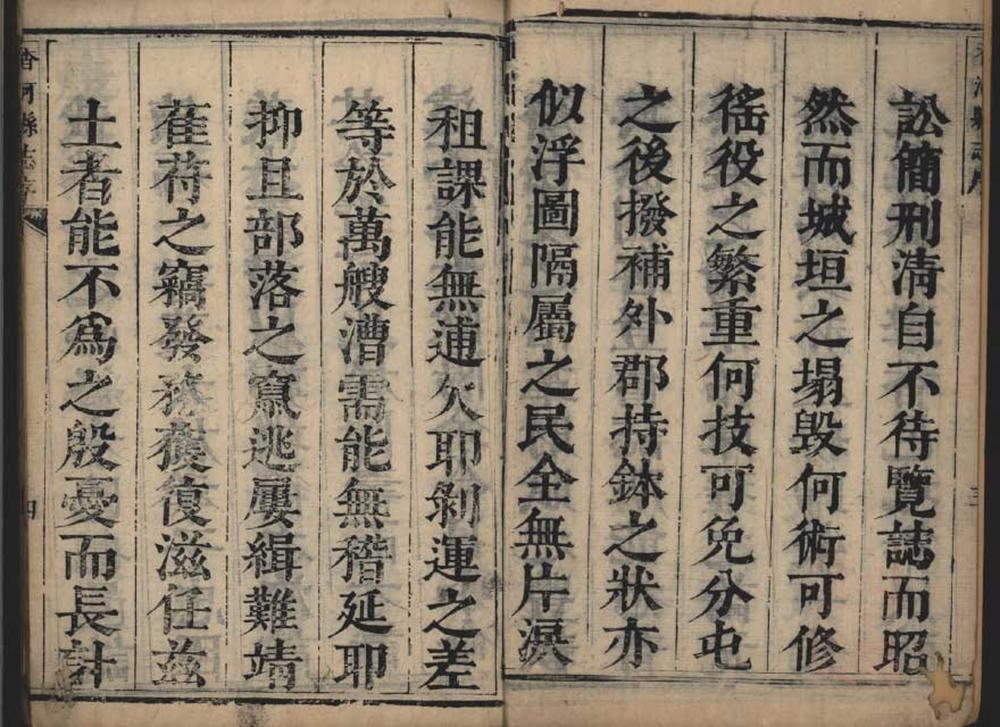 訟簡刑清自不待覽誌而昭
然而城垣之塌毀何術可修
徭役之繁重何技可免分屯
之後撥補外郡持鉢之狀亦
似浮圖隔屬之民全無片淚
三
租課能無逋欠耶剝運之差
等於萬艘漕需能無稽延耶
抑且部落之窵逃屢緝難靖
萑苻之竊發務獲復滋任茲
土者能不爲之殷憂而長計
香河縣志序
四